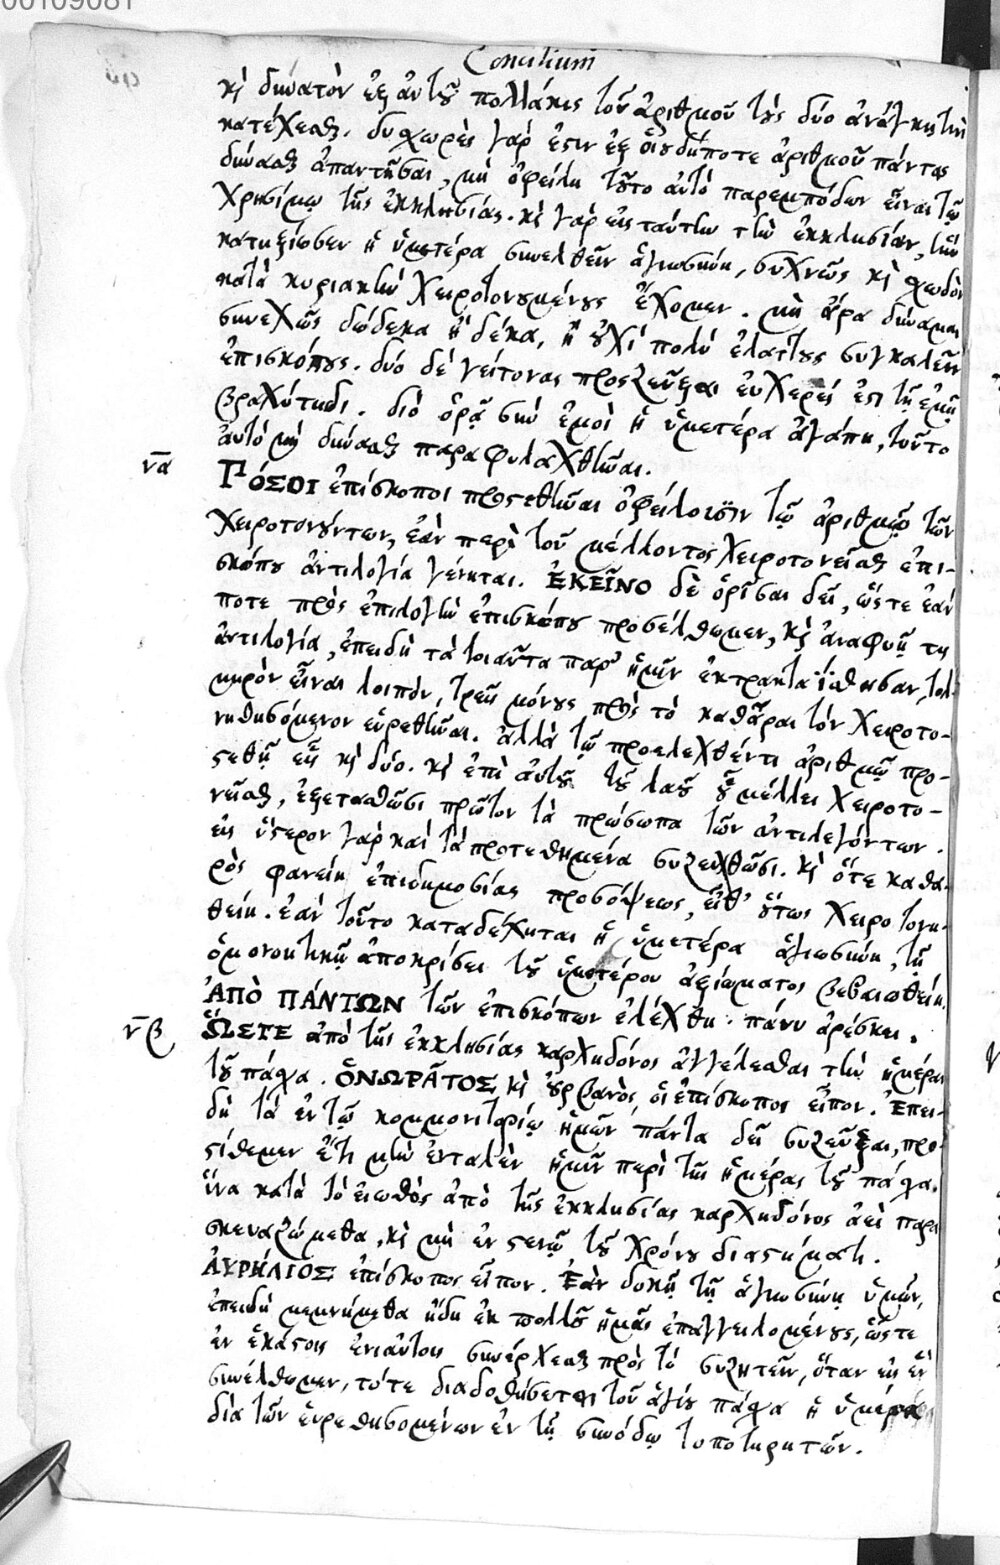 00109081
Concilium
κὶ δυνατὸν ἐξ αὐτοῦ πολλάκις τοῦ ἀριθμοῦ τοὺς δύο ἀνάγκη
κατέχεσθαι. δυσχερὲς γάρ ἐστιν ἐξ οἱουδήποτε ἀριθμοῦ πάντας
δύνασθαι ἀπαντῆσαι, μὴ ὀφείλῃ τοῦτο αὐτὸ παρεμπόδιον εἶναι τῷ
χρησίμῳ τῆς ἐκκλησίας. κὶ γὰρ εἰς ταύτην τὴν ἐκκλησίαν, εἰς ἣν
κατηξίωσεν ἡ ὑμετέρα συνελθεῖν ἁγιωσύνη, συχνῶς κὶ σχεδὸν
κατὰ κυριακὴν χειροτονουμένους ἔχομεν. μὴ ἄρα δύναμαι
συνεχῶς δώδεκα ἢ δέκα, ἢ οὐχὶ πολὺ ἐλάττους συγκαλεῖν
ἐπισκόπους. δύο δὲ γείτονας προσζεῦξαι εὐχερές ἐστι τῇ ἐμῇ
βραχύτητι. διὸ ὁρᾷ σὺν ἐμοὶ ἡ ὑμετέρα ἀγάπη, τοῦτο
αὐτὸ μὴ δύνασθαι παραφυλαχθῆναι.
να
Πόσοι ἐπίσκοποι προστεθῆναι ὀφείλουσιν τῷ ἀριθμῷ τῶν
χειροτονούντων, ἐὰν περὶ τοῦ μέλλοντος χειροτονεῖσθαι ἐπι-
σκόπου ἀντιλογία γένηται. ἘΚΕΙ͂ΝΟ δὲ ὁρίσαι δεῖ, ὥστε ἐάν
ποτε πρὸς ἐπιλογὴν ἐπισκόπου προσέλθωμεν, κὶ ἀναφυῇ τις
ἀντιλογία, ἐπειδὴ τὰ τοιαῦτα παρ' ἡμῖν ἐκτρακταΐσθησαν, τολ-
μηρὸν εἶναι λοιπόν, τρεῖς μόνους πρὸς τὸ καθᾶραι τὸν χειροτο-
νηθησόμενον εὑρεθῆναι. ἀλλὰ τῷ προλεχθέντι ἀριθμῷ προ-
στεθῇ εἷς κὶ δύο. κὶ ἐπὶ αὐτοῦ τοῦ λαοῦ ᾧ μέλλει χειροτο-
νεῖσθαι, ἐξετασθῶσι πρῶτον τὰ πρόσωπα τῶν ἀντιλεγόντων.
εἰς ὕστερον γὰρ καὶ τὰ προτεθημένα συζευχθῶσι. κὶ ὅτε καθα-
ρὸς φανείη ἐπὶ δημοσίας προσόψεως, εἶθ' οὕτως χειροτονη-
θείη. ἐὰν τοῦτο καταδέχηται ἡ ὑμετέρα ἁγιωσύνη, τῇ
ὁμονοητικῇ ἀποκρίσει τοῦ ὑμετέρου ἀξιώματος βεβαιωθείη.
ἈΠῸ ΠΆΝΤΩΝ τῶν ἐπισκόπων ἐλέχθη. πάνυ ἀρέσκει.
νβ
ὭΣΤΕ ἀπὸ τῆς ἐκκλησίας καρχηδόνος ἀγγέλεσθαι τὴν ἡμέραν
τοῦ πάσχα. ὉΝΩΡᾶΤΟΣ κὶ οὐρβανὸς οἱ ἐπίσκοποι εἶπον. Ἐπει-
δὴ τὰ ἐν τῷ κομμονιτορίῳ ἡμῶν πάντα δεῖ συζεῦξαι, προ-
στίθεμεν ἔτι μὴν ἐνταλὲν ἡμῖν περὶ τῆς ἡμέρας τοῦ πάσχα.
ἵνα κατὰ τὸ εἰωθὸς ἀπὸ τῆς ἐκκλησίας καρχηδόνος ἀεὶ παρα
σκευαζώμεθα, κὶ μὴ ἐν στενῷ τοῦ χρόνου διαστήματι.
ΑΥΡΉΛΙΟΣ ἐπίσκοπος εἶπον. Ἐὰν δοκῇ τῇ ἁγιωσύνῃ ὑμῶν,
ἐπειδὴ μεμνήμεθα ἤδη ἐκ πολλοῦ ἡμᾶς ἐπαγγειλομένους, ὥστε
ἐν ἑκάστοις ἐνιαυτοῖς συνέρχεσθαι πρὸς τὸ συζητεῖν, ὅταν εἰς ἓν
συνέλθωμεν, τότε διαδοθήσεται τοῦ ἁγίου πάσχα ἡ ἡμέρα
διὰ τῶν εὑρεθησομένων ἐν τῇ συνόδῳ τοποτηρητῶν.